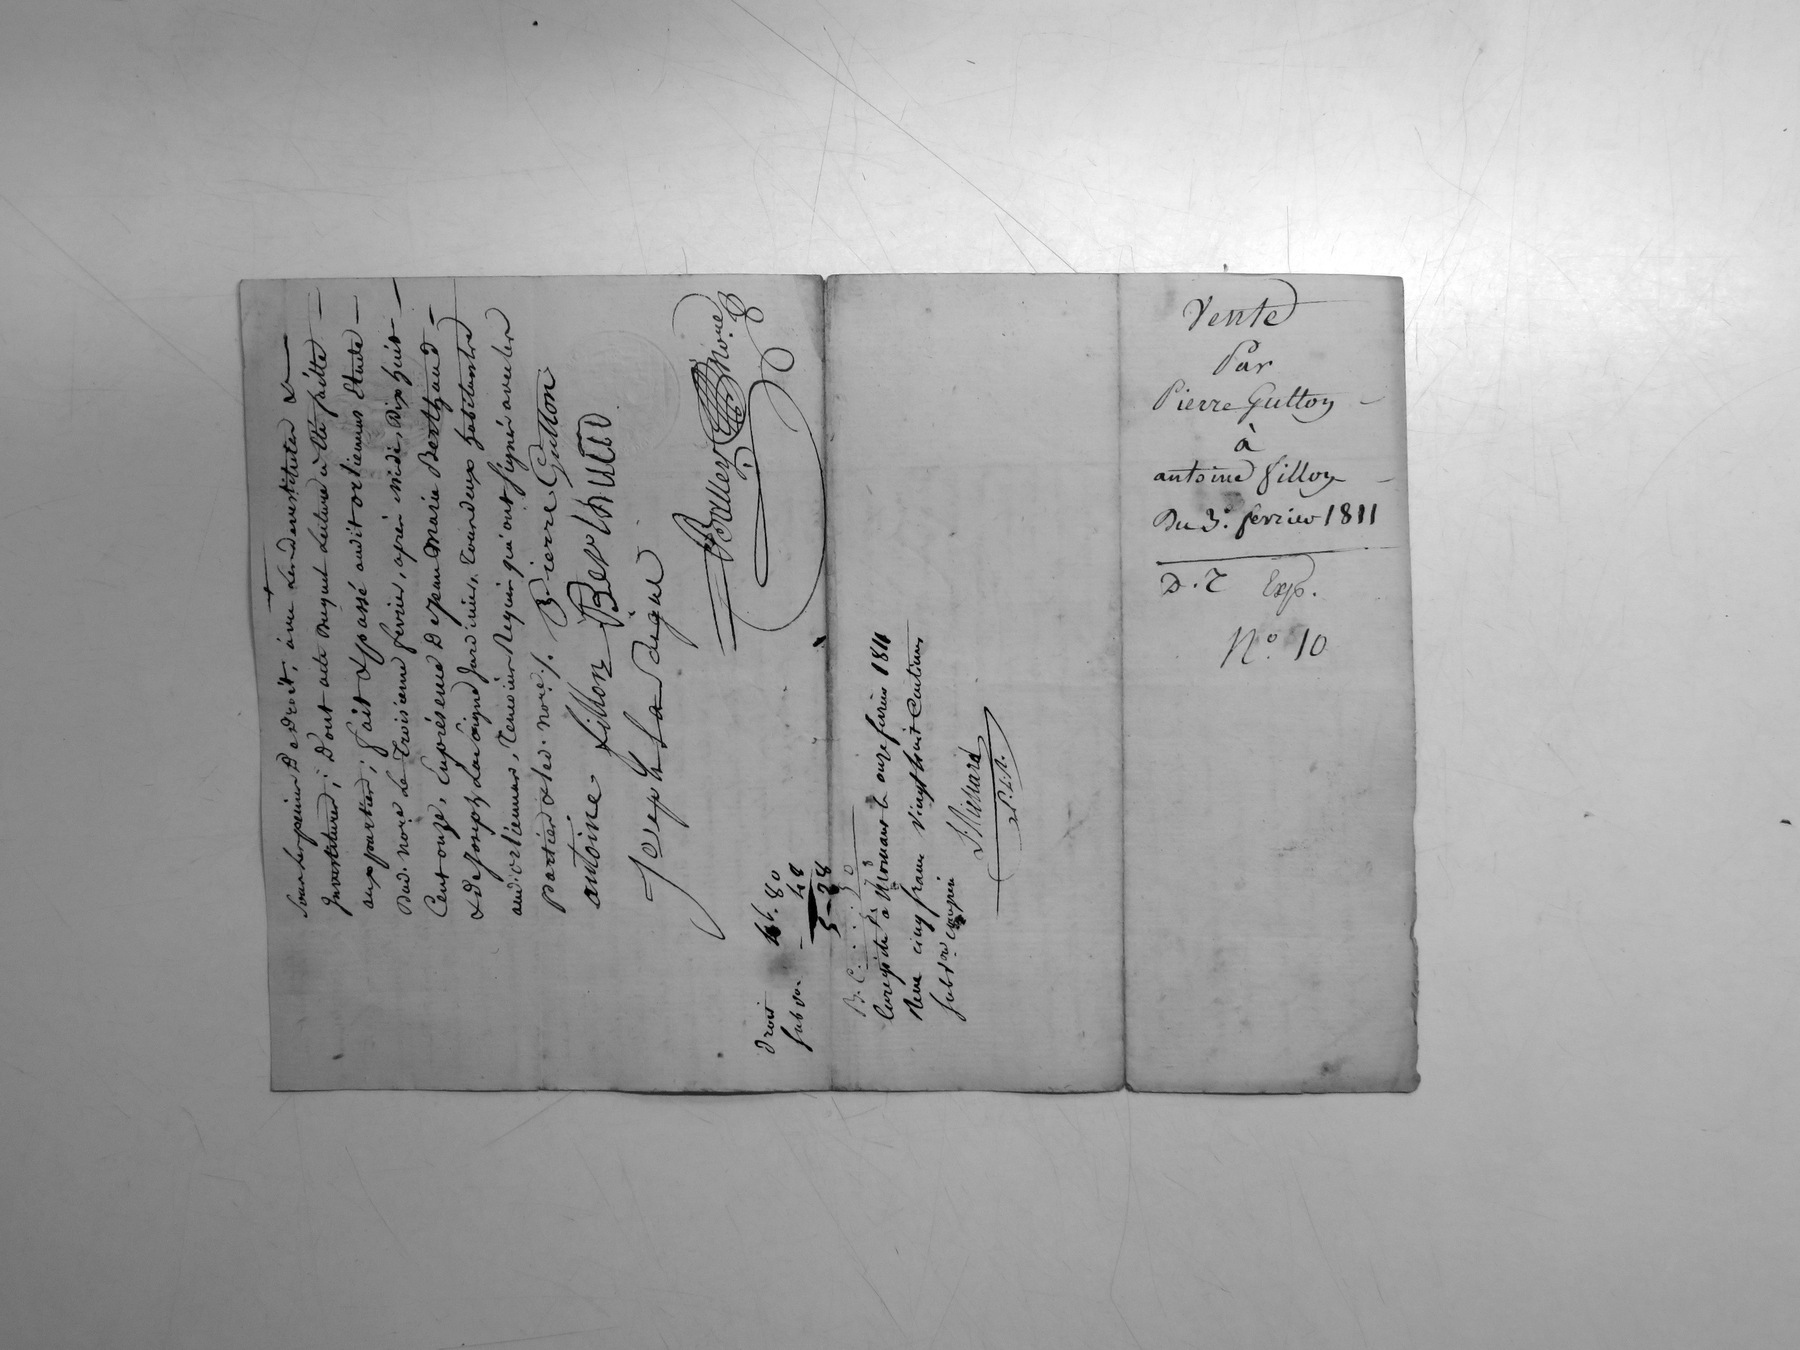 Sous les peines De droit, avec les devestitutes &
Investitures; Dont acte Duquel lecture a été faitte
aux parties; fait & passé audit orliennas Etude
Dud. nore le Troisieme fevrier, après midi, Dix huit
Cent onze, En présence De Jean Marie Berthaud
& de Joseph Lardigue Jardinier, Tous deux habitants
aud. orliennas, Temoins Requis qui ont signés avec les
parties & led. nore ./. Pierre Gutton
antoine fillon Berthaud
Joseph Lardigue
Balley Nore
droit 4.80
subvon. - 48
5-28
Enregistré a Mornant le onze fevrier 1811
Reçu cinq francs vingt huit Centimes
subvon comprise
Vente
Par
Pierre Gutton
à
antoine fillon
Du 3e. fevrier 1811
D.T Exp.
No. 10